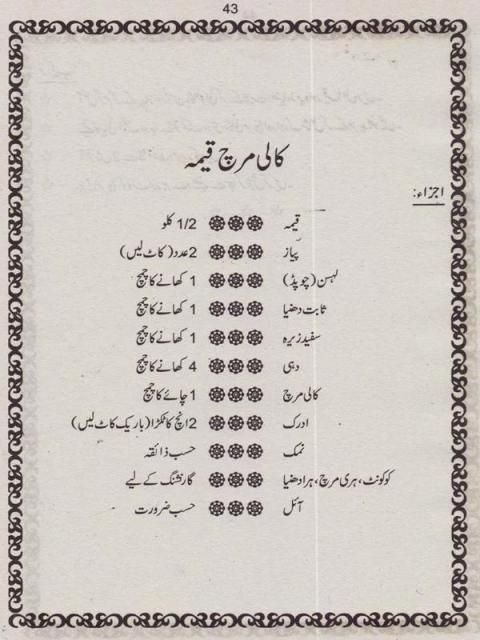 43
کالی مرچ قیمہ
اجزاء:
قیمہ 1/2 کلو
پیاز 2 عدد (کاٹ لیں)
لہسن (چوپڈ) 1 کھانے کا چمچ
ثابت دھنیا 1 کھانے کا چمچ
سفید زیرہ 1 کھانے کا چمچ
دہی 4 کھانے کا چمچ
کالی مرچ 1 چائے کا چمچ
ادرک 2 انچ کا ٹکڑا (باریک کاٹ لیں)
نمک حسب ذائقہ
کوکونٹ، ہری مرچ، ہرا دھنیا گارنشنگ کے لیے
آئل حسب ضرورت